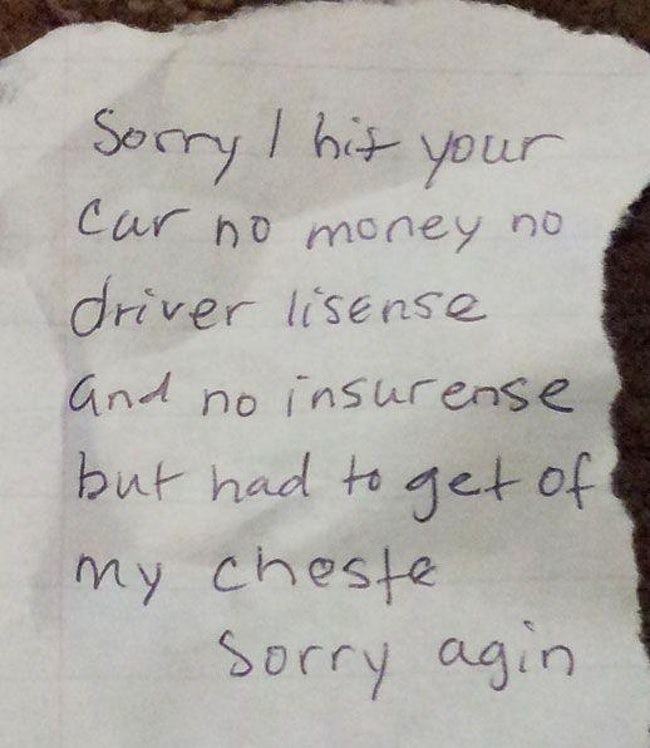 Sorry I hit your
car no money no
driver lisense
and no insurense
but had to get of
my cheste
Sorry agin